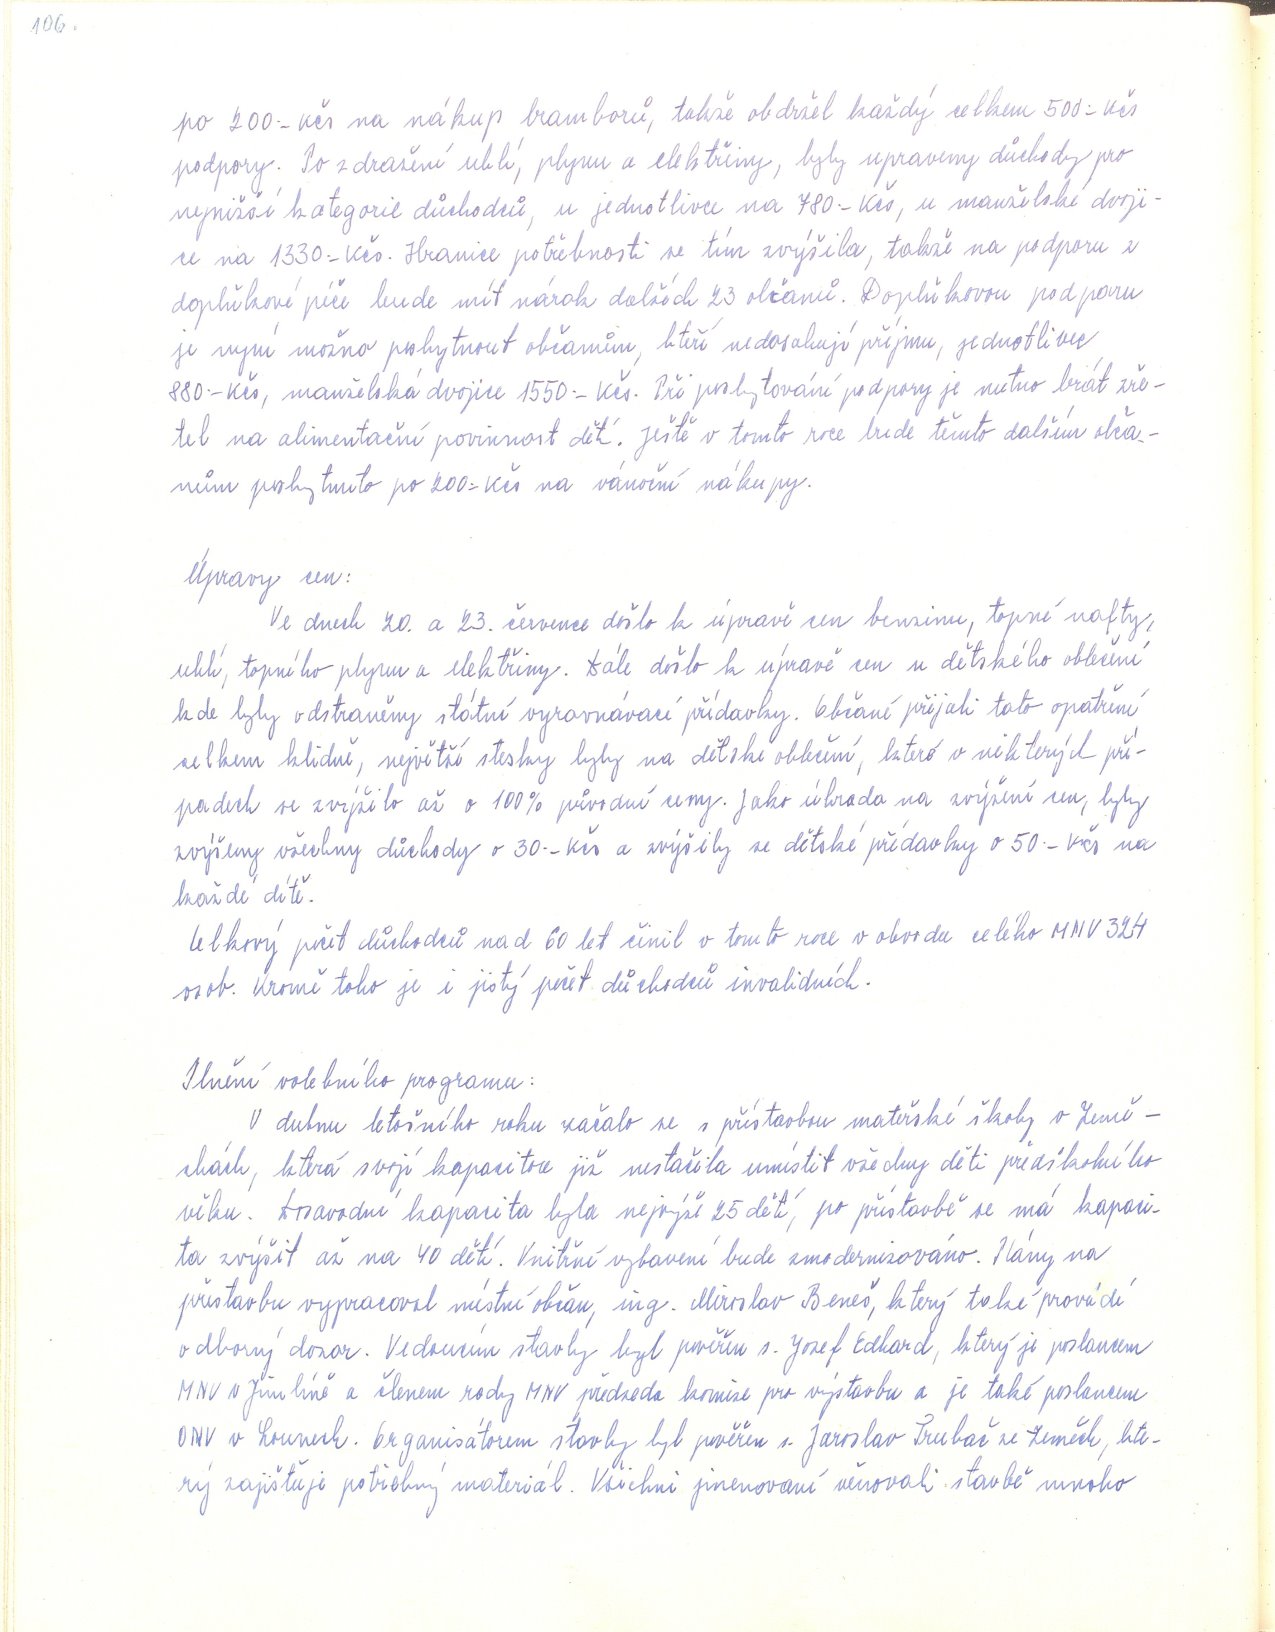 106.
po 200.- Kčs na nákup bramborů, takže obdržel každý celkem 500.- Kčs
podpory. Po zdražení uhlí, plynu a elektřiny, byly upraveny důchody pro
nejnižší kategorie důchodců, u jednotlivce na 780.- Kčs, u manželské dvoji-
ce na 1330.- Kčs. Hranice potřebnosti se tím zvýšila, takže na podporu z
doplňkové péče bude mít nárok dalších 23 občanů. Doplňkovou podporu
je nyní možno poskytnout občanům, kteří nedosahují příjmu, jednotlivec
880.- Kčs, manželská dvojice 1550.- Kčs. Při poskytování podpory je nutno brát zře-
tel na alimentační povinnost dětí. Ještě v tomto roce bude těmto dalším obča-
nům poskytnuto po 200.- Kčs na vánoční nákupy.
Úpravy cen:
Ve dnech 20. a 23. července došlo k úpravě cen benzinu, topné nafty,
uhlí, topného plynu a elektřiny. Dále došlo k úpravě cen u dětského oblečení
kde byly odstraněny státní vyrovnávací přídavky. Občané přijali toto opatření
celkem klidně, největší stesky byly na dětské oblečení, které v některých pří-
padech se zvýšilo až o 100% původní ceny. Jako úhrada na zvýšení cen, byly
zvýšeny všechny důchody o 30.- Kčs a zvýšily se dětské přídavky o 50.- Kčs na
každé dítě.
Celkový počet důchodců nad 60 let činil v tomto roce v obvodu celého MNV 324
osob. Kromě toho je i jistý počet důchodců invalidních.
Plnění volebního programu:
V dubnu letošního roku začalo se s přístavbou mateřské školy v Země-
chách, která svojí kapacitou již nestačila umístit všechny děti předškolního
věku. Dosavadní kapacita byla nejvýše 25 dětí, po přístavbě se má kapaci-
ta zvýšit až na 40 dětí. Vnitřní vybavení bude zmodernisováno. Plány na
přístavbu vypracoval místní občan, ing. Miroslav Beneš, který také provádí
odborný dozor. Vedoucím stavby byl pověřen s. Josef Edhard, který je poslancem
MNV v Jimlíně a členem rady MNV předseda komise pro výstavbu a je také poslancem
ONV v Lounech. Organisátorem stavby byl pověřen s. Jaroslav Trubač ze Zeměch, kte-
rý zajišťuje potřebný materiál. Všichni jmenovaní věnovali stavbě mnoho